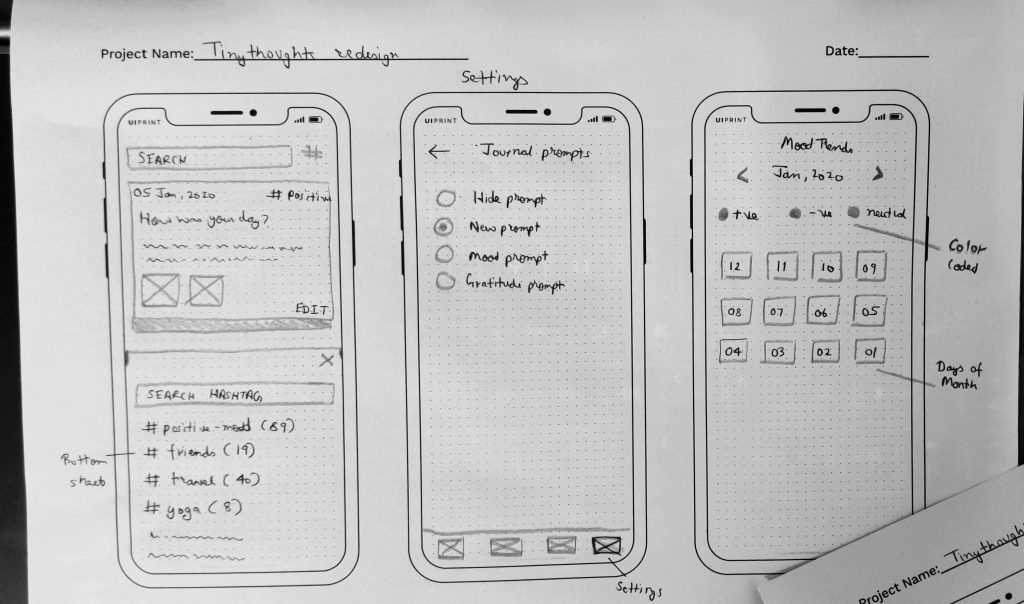 Project Name: Tinythoughts redesign
Date:
Settings
UIPRINT
SEARCH #
05 Jan, 2020 # Positive
How was your day?
EDIT
X
SEARCH HASHTAG
# positive-mood (89)
# friends (19)
# travel (40)
# yoga (8)
Bottom
sheet
UIPRINT
← Journal prompts
Hide prompt
New prompt
Mood prompt
Gratitude prompt
Settings
UIPRINT
Mood Trends
< Jan, 2020 >
+ve -ve neutral
Color
Coded
12 11 10 09
08 07 06 05
04 03 02 01
Days of
Month
Project Name: Tinythough